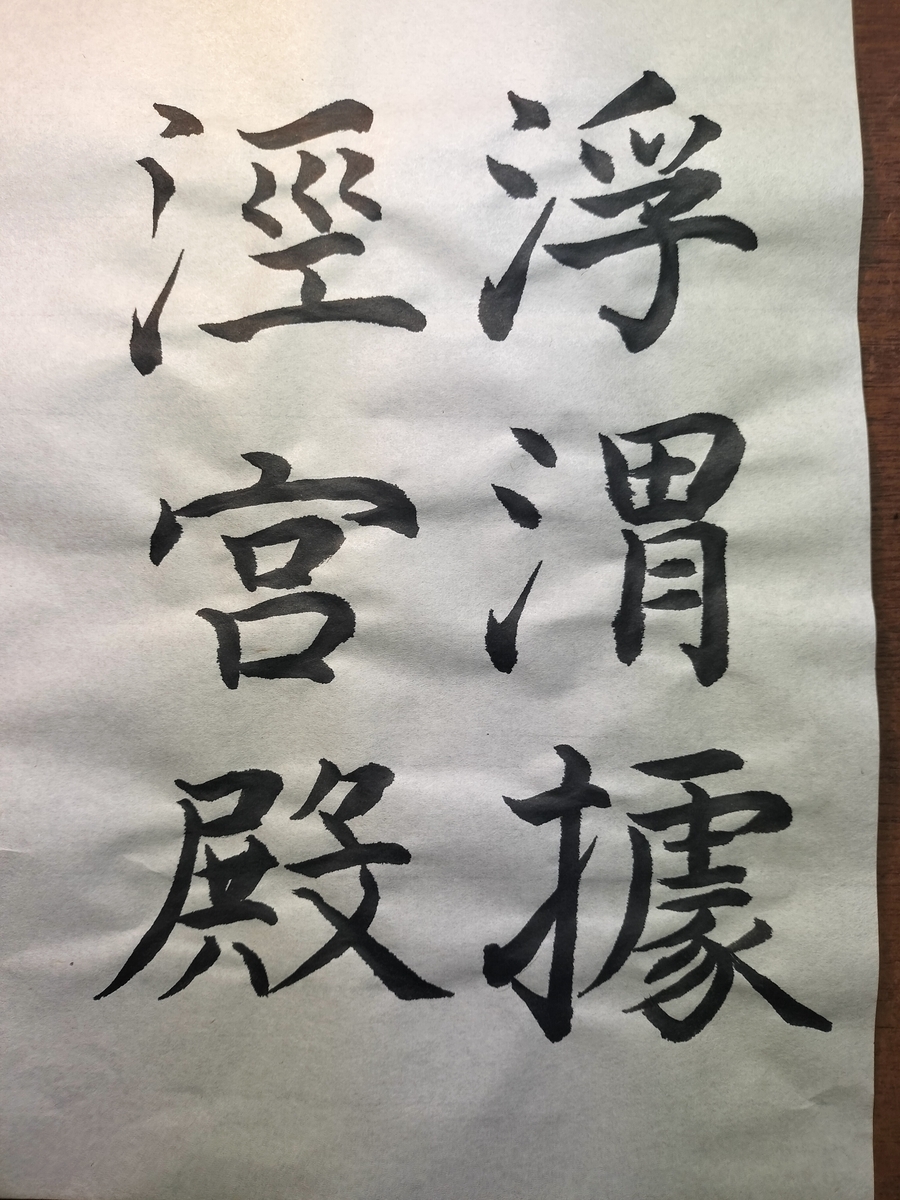 浮渭據
涇宫殿